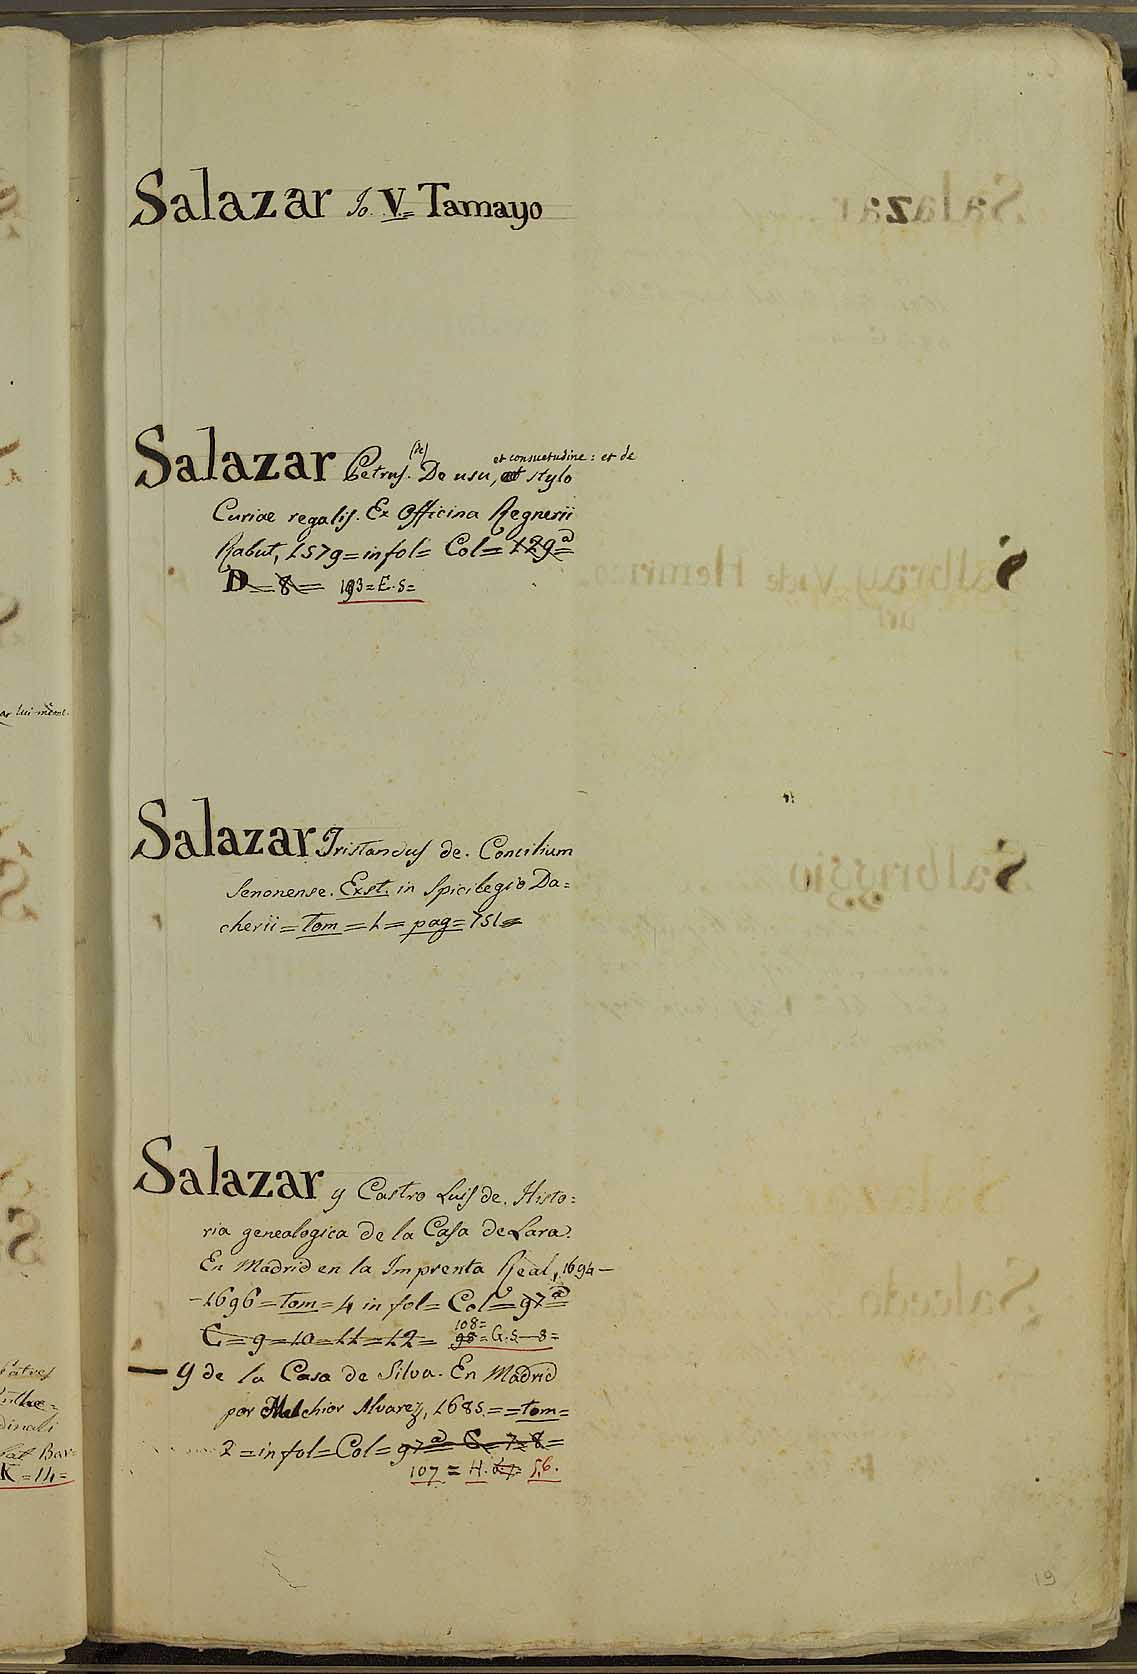 Salazar Jo. V. = Tamayo
Salazar Petrus. (de) De usu, et consuetudine : et de stylo
Curiae regalis. Ex Officina Regnerii
Rabut, 1579 = in fol = Col = 129ª =
D = 8 = 193 = E. 5 =
Salazar Tristandus de. Concilium
Senonense. Exst. in Spicilegio Da=
cherii = tom = 1 = pag = 751 =
Salazar y Castro Luis de. Histo=
ria genealogica de la Casa de Lara.
En Madrid en la Imprenta Real, 1694 -
- 1696 = tom = 4 in fol = Col = 97ª =
108 =
C = 9 = 10 = 11 = 12 = 98 = G. 5 - 8 =
— y de la Casa de Silva. En Madrid
por Melchior Alvarez, 1685. = = tom =
2 = in fol = Col = 97ª C = 7 = 8 =
107 = H. 5.6.
19
ar lui-même.
Patres
dinali
Bar=
K = 14 =